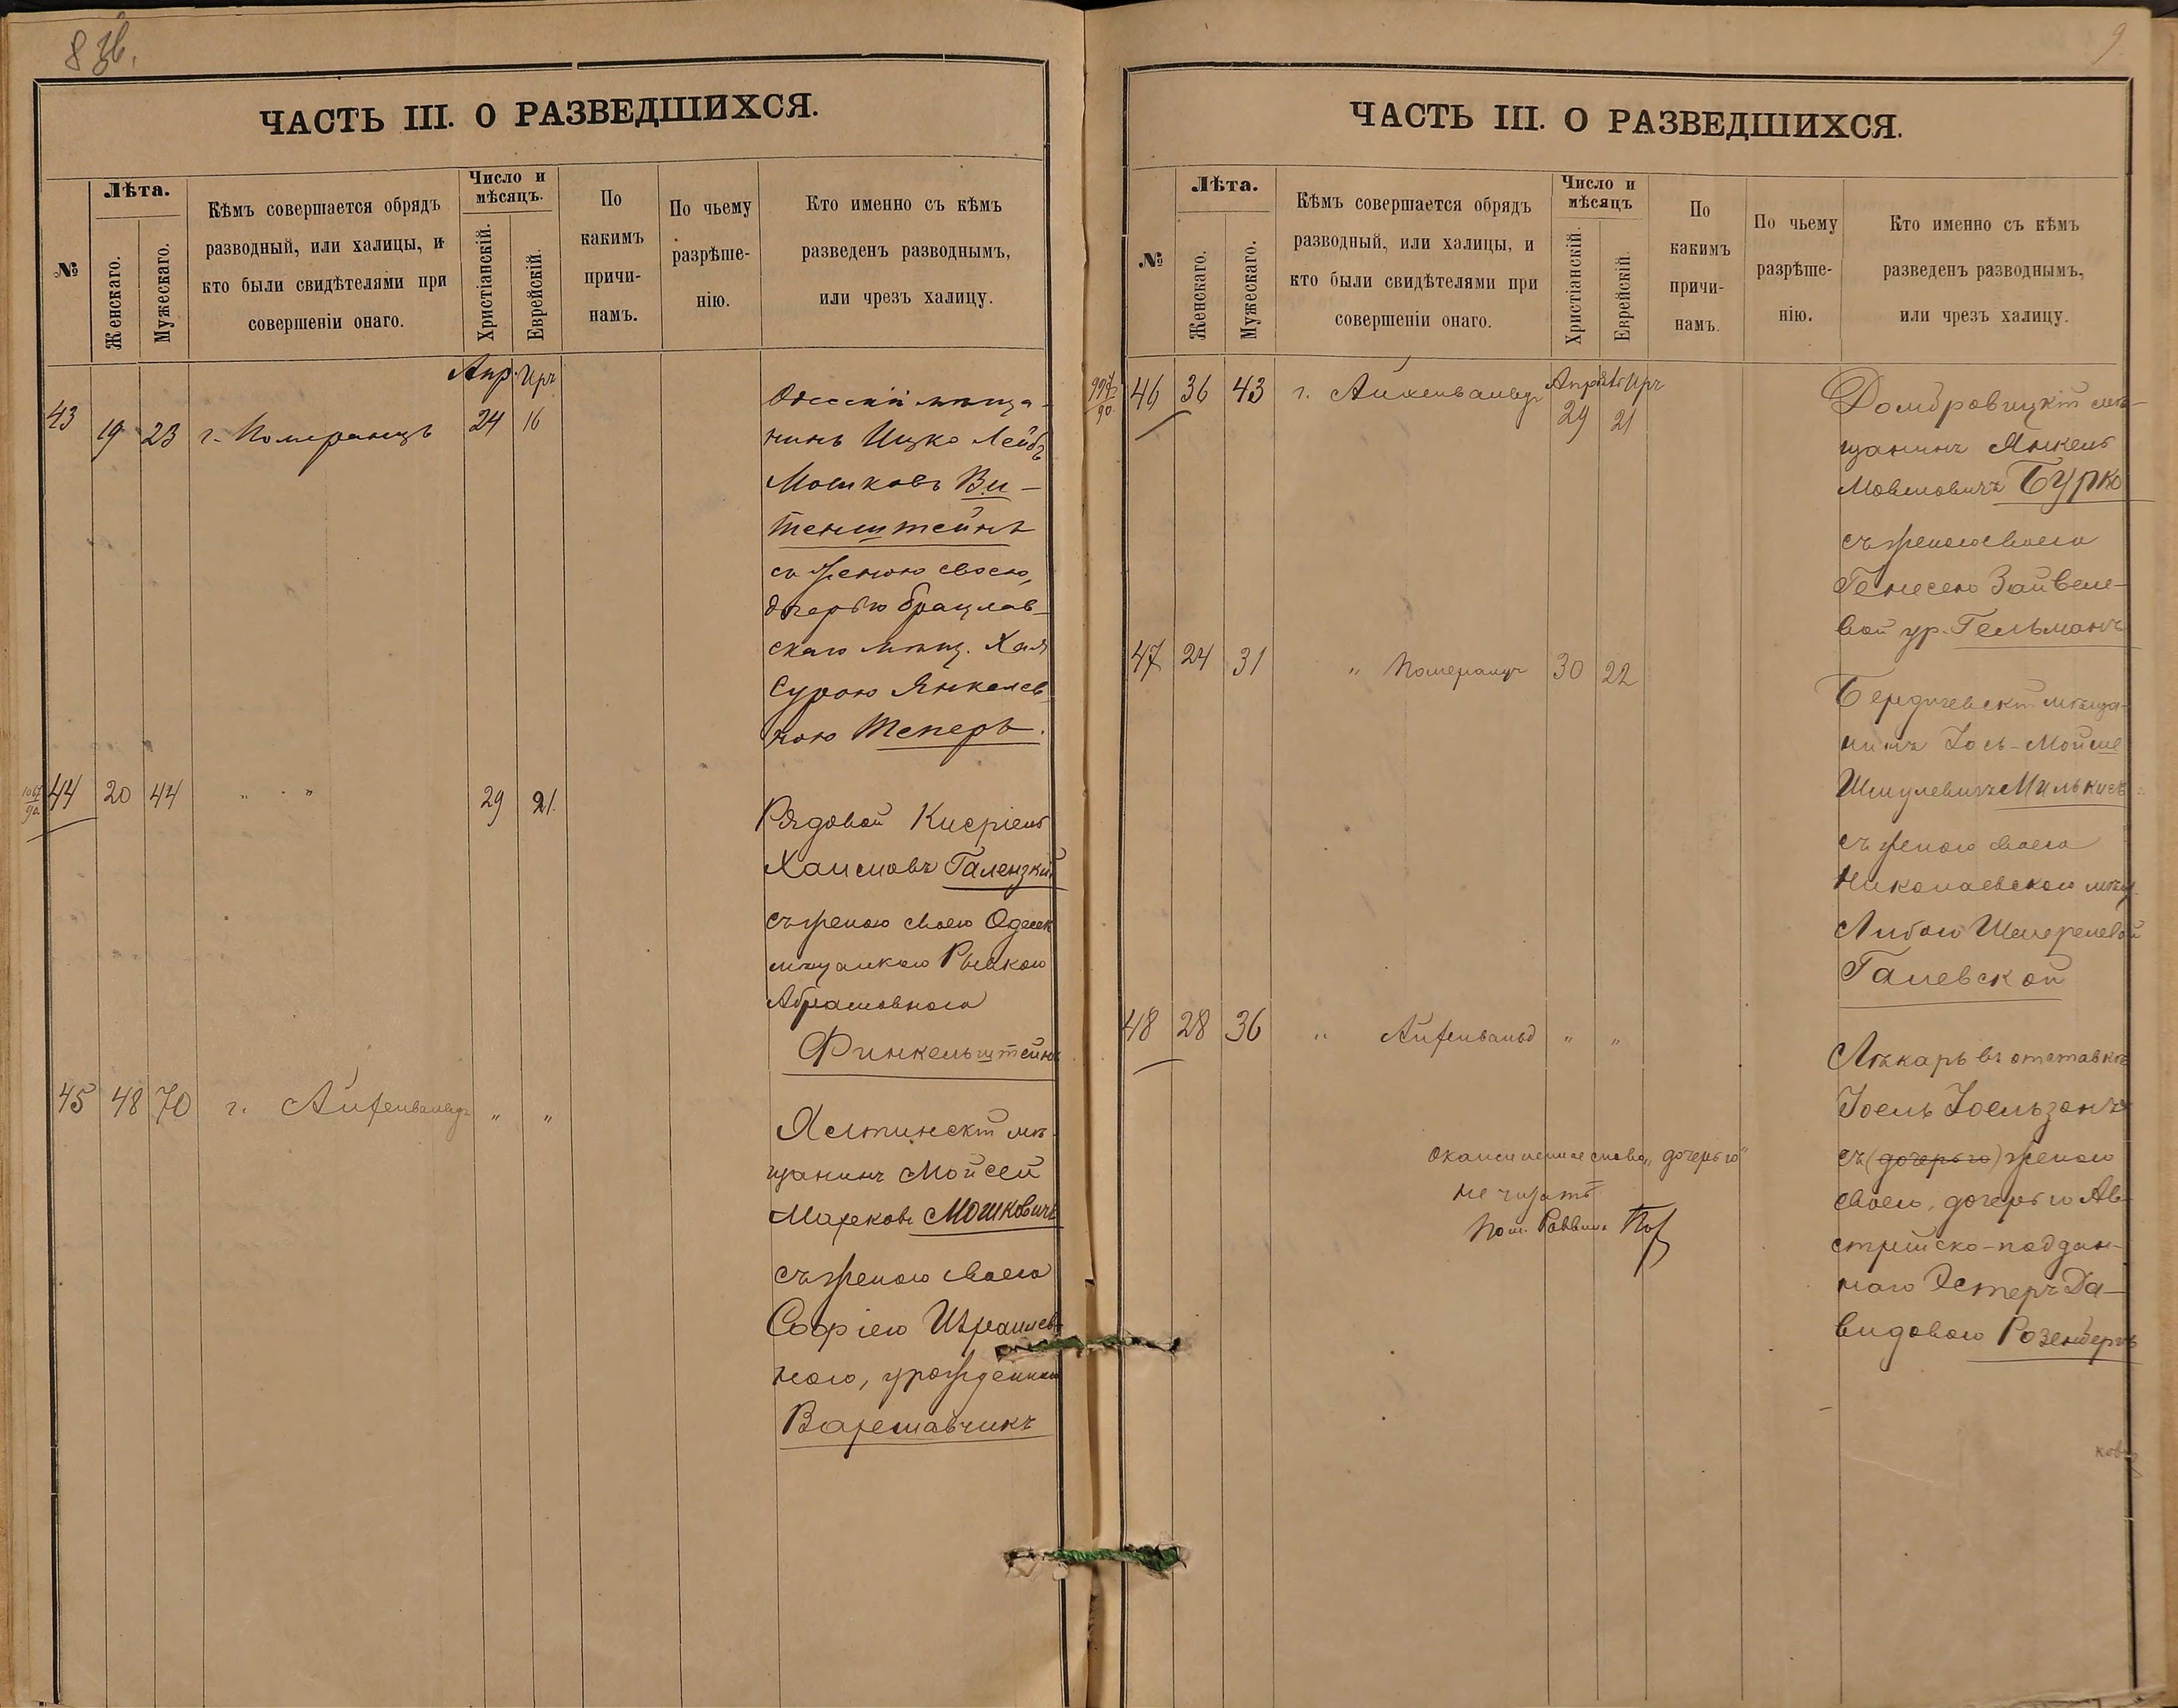 8 зв.
ЧАСТЬ III. О РАЗВЕДШИХСЯ.
№
Лѣта.
Женскаго.
Мужескаго.
Кѣмъ совершается обрядъ
разводный, или халицы, и
кто были свидѣтелями при
совершеніи онаго.
Число и
мѣсяцъ.
Христіанскій.
Еврейскій.
По
какимъ
причи-
намъ.
По чьему
разрѣше-
нію.
Кто именно съ кѣмъ
разведенъ разводнымъ,
или чрезъ халицу.
Апр. Иръ
43 19 23 г. Померанцъ 24 16
Одесскій мѣща-
нинъ Ицко Лейбъ
Мошковъ Ви-
тенштейнъ
съ женою своею,
дочерью брацлав-
скаго мѣщ. Хая
Сурою Янкелев-
ною Теперъ.
1067/90 44 20 44 " " 29 21.
Рядовой Кисріель
Хаимовъ Галензкій
съ женою своею Одесск
мѣщанкою Рывкою
Абрамовною
Финкельштейнъ
45 48 70 г. Айзенвальдъ " "
Ялтинскій мѣ-
щанинъ Мойсей
Марковъ Мошковичъ
съ женою своею
Софіею Израилев-
ною, урожденной
Варшавчикъ
9
ЧАСТЬ III. О РАЗВЕДШИХСЯ.
№
Лѣта.
Женскаго.
Мужескаго.
Кѣмъ совершается обрядъ
разводный, или халицы, и
кто были свидѣтелями при
совершеніи онаго.
Число и
мѣсяцъ
Христіанскій.
Еврейскій.
По
какимъ
причи-
намъ.
По чьему
разрѣше-
нію.
Кто именно съ кѣмъ
разведенъ разводнымъ,
или чрезъ халицу.
997/90 46 36 43 г. Айхенвальдъ Апрѣль Иръ
29 21
Домбровицкій мѣ-
щанинъ Янкель
Мовшовичъ Бурко
съ женою своею
Генесею Зайвеле-
вой ур. Гельманъ
47 24 31 " Померанцъ 30 22
Бердичевскій мѣща-
нинъ Іось-Мойше
Шмулевичъ Милькисъ
съ женою своею
Николаевскою мѣщ.
Либою Шмерелевой
Галевской
48 28 36 " Айзенвальд " "
Лѣкарь въ отставкѣ
Іоель Іоельзонъ
съ (дочерью) женою
своею, дочерью Ав-
стрійско-поддан-
наго Эстеръ Да-
видовою Розенбергъ
слово „дочерью"
не читать
Пом. Раввина